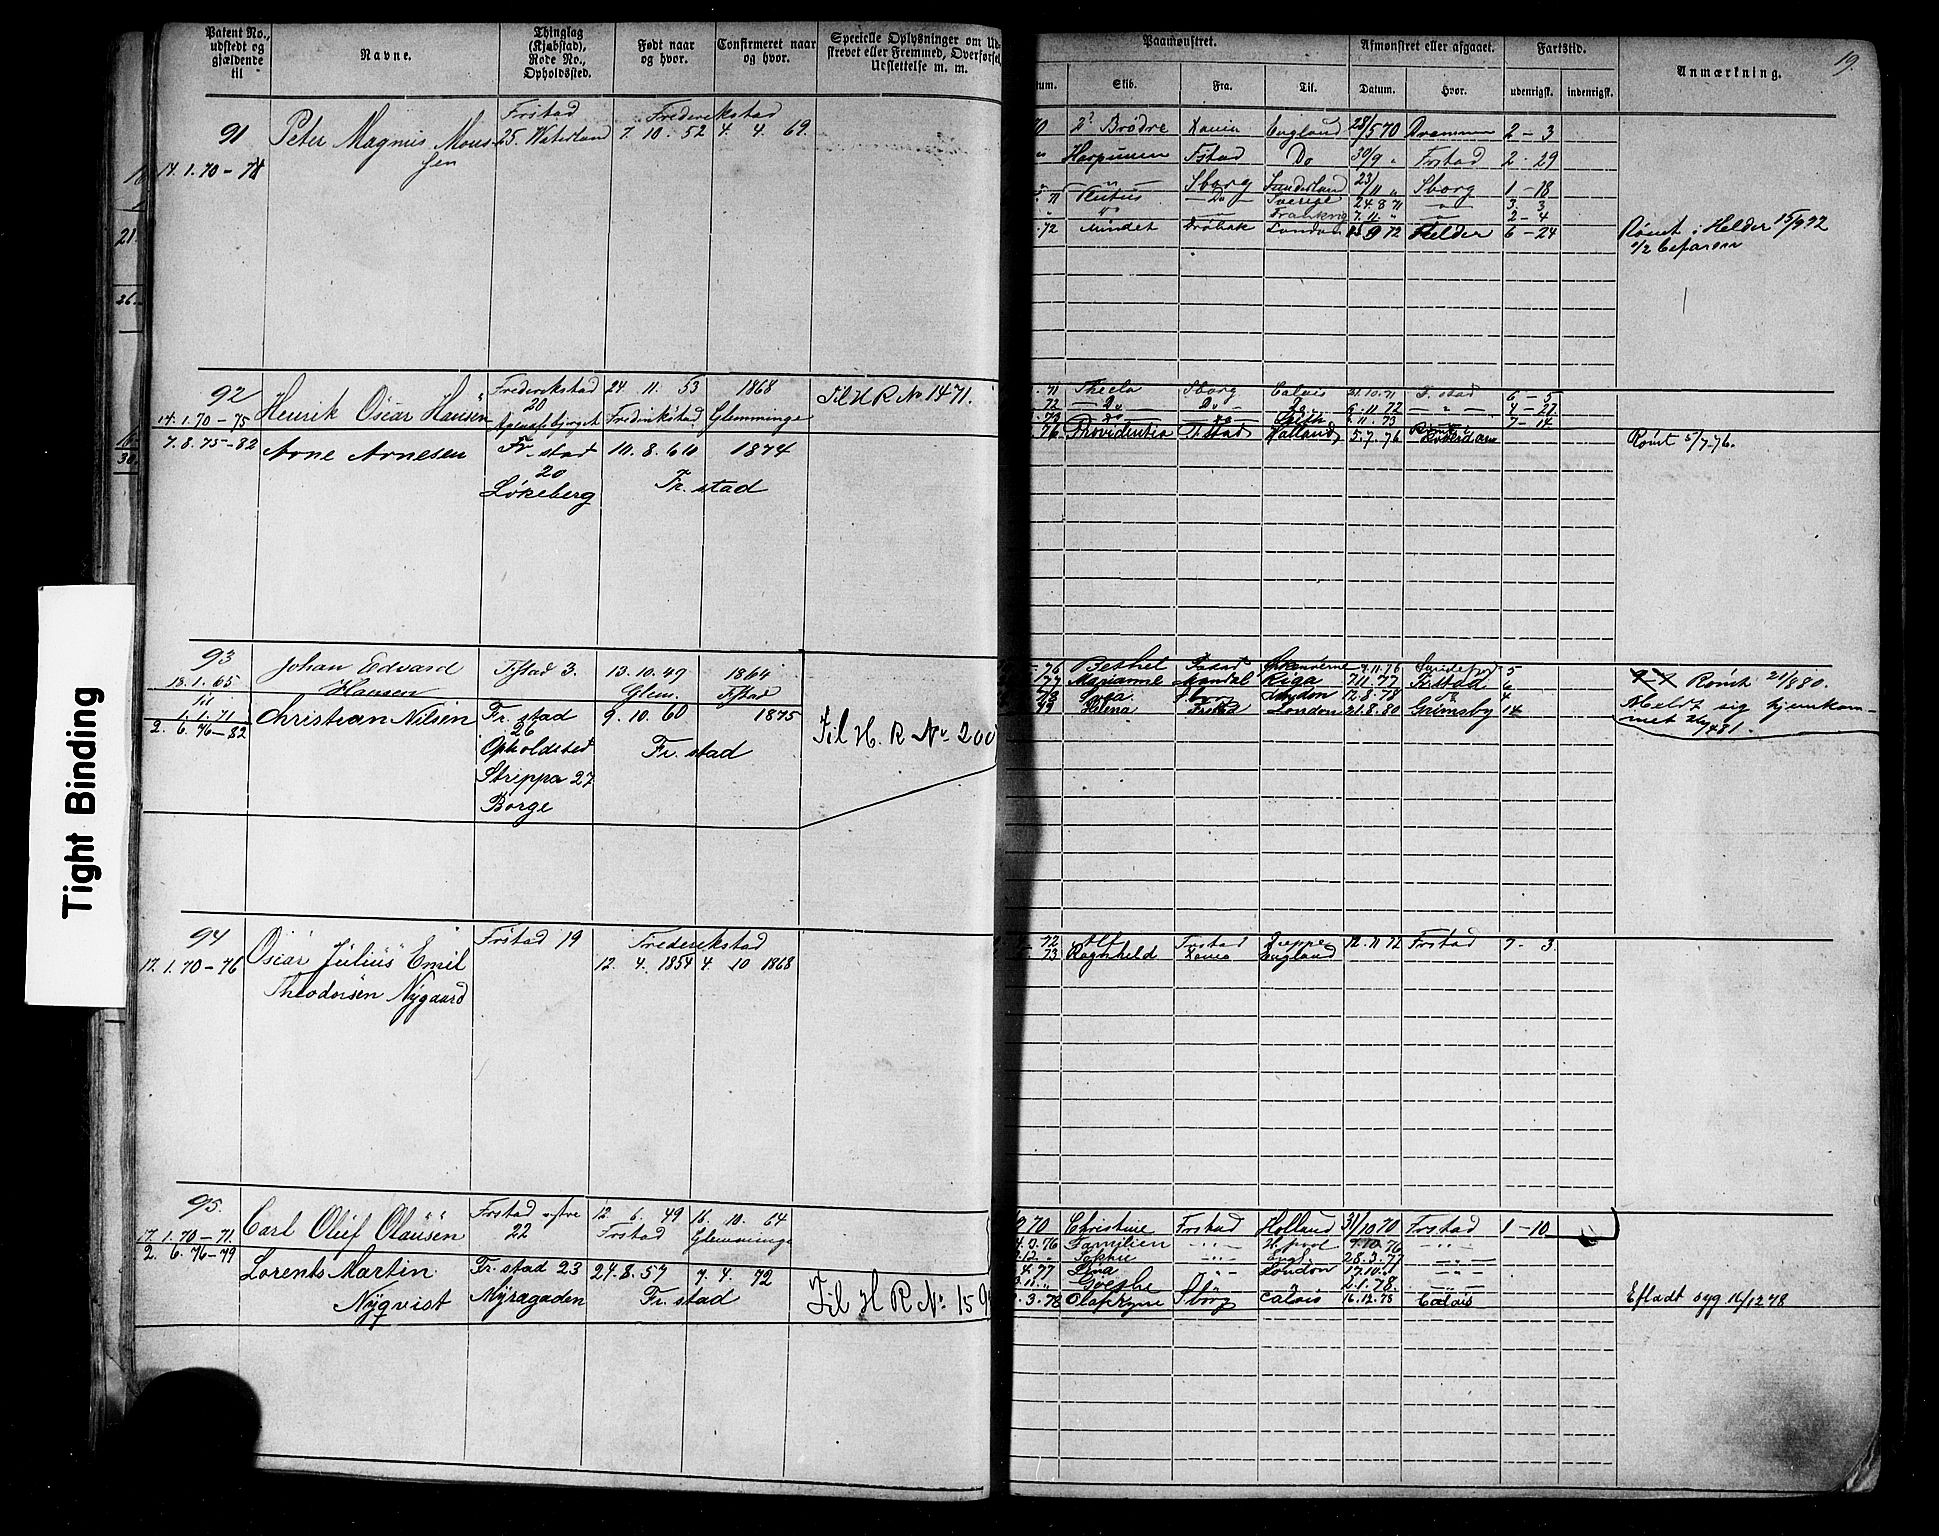 Patent No., udstedt og gjældende til
Navne.
Thinglag (Kjøbstad), Rode No., Opholdssted.
Født naar og hvor.
Confirmeret naar og hvor.
Specielle Oplysninger om Ud-
skrevet eller Fremmed, Overførsel,
Udslettelse m. m.
Paamønstret.
Afmønstret eller afgaaet.
Fartstid.
Anmærkning.
19.
tum.
Skib.
Fra.
Til.
Datum.
Hvor.
udenrigsk.
indenrigsk.
91
Peter Magnus Mons
sen
Frstad
25. Waterland
Frederikstad
7. 10. 52 4 4 69.
14. 1. 70 - 71
70 2 Brødre Xania England 28/5 70 Drammen 2 - 3
" Harpunen Fstad Do 30/9 " Frstad 2 - 29
Sborg Sunderland 23/11 " Sborg 1 - 18
71 Plutus Do Sverige 24.8 71 " 3 3
7.11. " 2 - 4
72 Mindet Drøbak London 15 9 72 Helder 6 - 24
Rømt i Helder 15/9 72
92
Henrik Oscar Hansen
Frederikstad
20
24. 11. 53
Frederikstad
1868
Glemminge
Til H R No 1471.
14. 1. 70 - 75
71 Thecla Sborg Calais 21.10.71 F. stad 6 - 5
72 Do Do 6.11 72 " 4 - 27
73 Do 11. 73 7 - 14
76. Providentia Frstad Holland 5. 7. 76
Rømt 5/7.76.
7. 8. 75 - 82
Arne Arnesen
Fr. stad
20
Løkeberg
10. 8. 60
1874
Fr. stad
93
18. 1. 65
til
1. 1. 71
Johan Edvard
Hansen
Frstad 3.
13. 10. 49
Glem.
1864
Fstad
76 Bethel
77 Marianne Mandal Riga 7.11. 77 Frstad 6
78 Svea Sborg London 12. 8. 78 do 4
79 Helena Frstad London 21. 8. 80 Grimsby 14
Rømt 21/8 80.
Meldt sig hjemkom-
met 26/4 81.
2. 6. 76 - 82
Christian Nilsen
Fr. stad
26
Opholdsted
Strippa 27
Borge
9. 10. 60
1875
Fr. stad
Til H. R No 200
94
Oscar Julius Emil
Theodorsen Nygaard
Frstad 19
Frederikstad
12. 4. 1854 4. 10 1868
17. 1. 70 - 76
72 Alf Frstad Dieppe 12. 11 72 Frstad 7 - 3
73 Ragnhild Xania England
95.
Carl Oluf Olausen
Frstad østre
22
12. 6. 49
Frstad
16. 10. 64
Glemminge
17. 1. 70 - 71.
9 70 Christine Frstad Holland 31/10 70 Frstad 1 - 10
76 Familien 9.10. 76
Sophie Engl. 28. 3. 77
4. 77 Lina London 17.10. "
Goethe 2. 1. 78.
3. 78 Olaf Kyrre Sborg Calais 16. 12. 78 Calais
Efladt syg 16/12 78
2. 6. 76 - 79
Lorents Martin
Nyqvist
Fr. stad 23
Myragaden
24. 8. 57
7. 4. 72
Fr. stad
Til H R No 159
Tight Binding